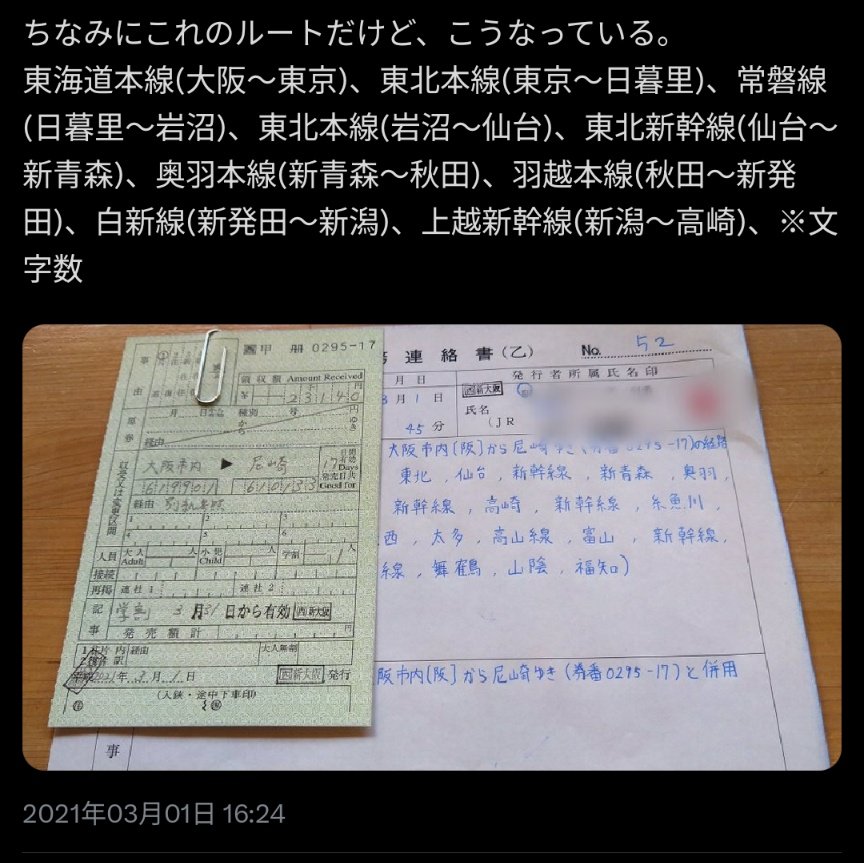 ちなみにこれのルートだけど、こうなっている。
東海道本線(大阪〜東京)、東北本線(東京〜日暮里)、常磐線
(日暮里〜岩沼)、東北本線(岩沼〜仙台)、東北新幹線(仙台〜
新青森)、奥羽本線(新青森〜秋田)、羽越本線(秋田〜新発
田)、白新線(新発田〜新潟)、上越新幹線(新潟〜高崎)、※文
字数
甲 冊 0295-17
領収額 Amount Received
23140
月 日 種別 号
経由
大阪市内 ▶ 尼崎
17 Days
Good for
経由 別紙
1 2 3
4 5 6
人員 大人 Adult 人 小児 Child 人 学割 人
接続
再掲 連社1 連社2
記 学割 3月31日から有効 西新大阪
事 発売額計 円
内訳 経由 大人無割
2021年 3月 1日 西新大阪 発行
(入鋏・途中下車印)
連絡書(乙) No. 52
月 日 発行者所属氏名印
3月1日 西新大阪
氏名
45分 (JR
大阪市内[阪]から尼崎ゆき(券番0295-17)の経路
東北, 仙台, 新幹線, 新青森, 奥羽,
新幹線, 高崎, 新幹線, 糸魚川,
西, 太多, 高山線, 富山, 新幹線,
線, 舞鶴, 山陰, 福知)
阪市内[阪]から尼崎ゆき(券番0295-17)と併用
事
2021年03月01日 16:24